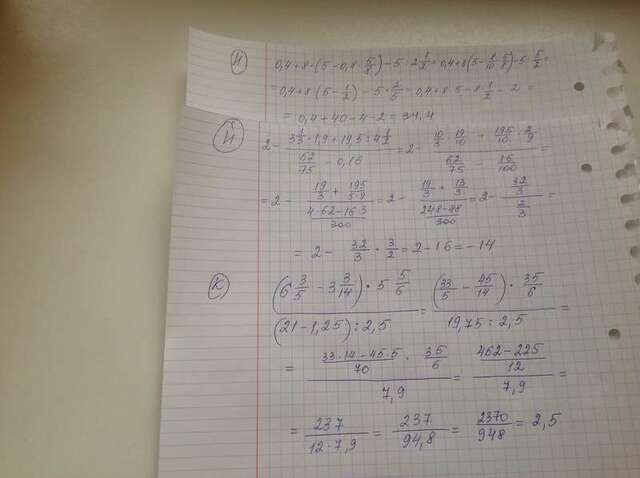 и) 0,4+8·(5-0,8·5/8)-5:2 1/2=0,4+8(5-8/10·5/8)-5:5/2=
=0,4+8(5-1/2)-5·2/5=0,4+8·5-8·1/2-2=
=0,4+40-4-2=34,4
й) 2-(3 1/3·1,9+19,5:4 1/2)/(62/75-0,16)=2-(10/3·19/10+195/10·2/9)/(62/75-16/100)=
=2-(19/3+195/5·9)/((4·62-16·3)/300)=2-(19/3+13/3)/((248-48)/300)=2-(32/3)/(2/3)=
=2-32/3·3/2=2-16=-14
к) ((6 3/5-3 3/14)·5 5/6)/((21-1,25):2,5)=((33/5-45/14)·35/6)/(19,75:2,5)=
=((33·14-45·5)/70·35/6)/7,9=((462-225)/12)/7,9=
=237/(12·7,9)=237/94,8=2370/948=2,5